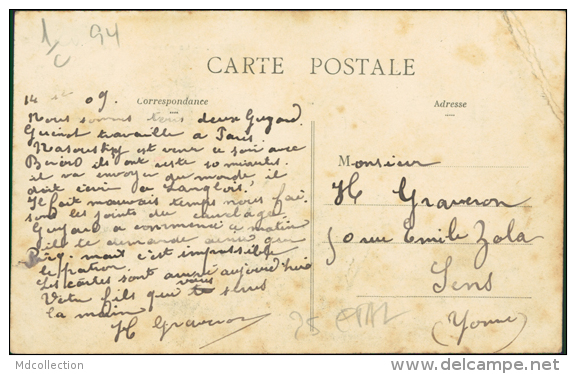 1/c 94
CARTE POSTALE
Correspondance
Adresse
14 09.
Nous sommes tous deux Guyard.
travaille a Paris.
est venu ce soir avec
ils ont resté 50 minutes.
il va envoyer du monde il
doit écrir a Langlois.
Il fait mauvais temps nous fai
sons les joints du
Guyard a commencé ce matin
demande ainsi que
mais c'est impossible
le patron.
Les cartes sont aujourd'hui
Votre fils qui vous serre
la main
H Graveron
Monsieur
H Graveron
50 rue Emile Zola
Sens
(Yonne)
25 ETAL
Mdcollection
delcampe.net